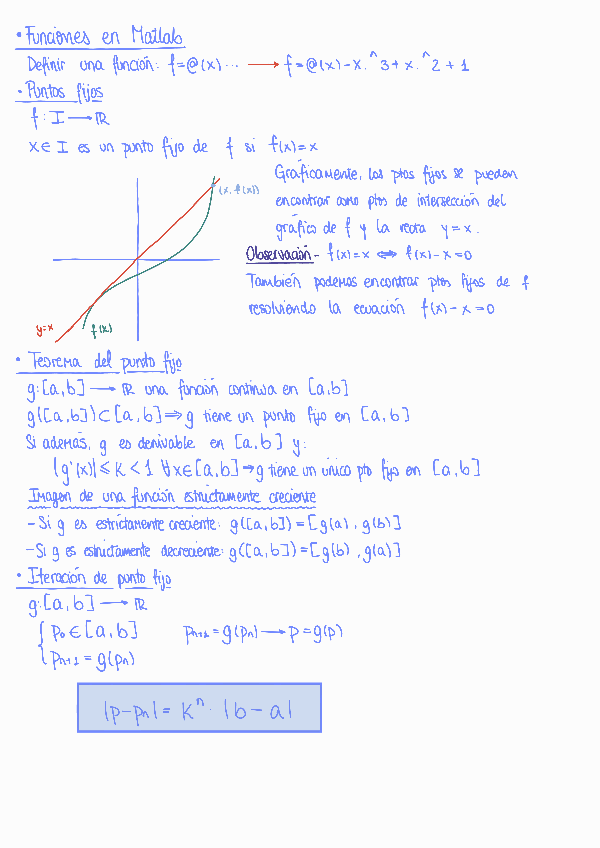 • Funciones en Matlab
Definir una función: f=@(x)... → f=@(x)-x.^3+x.^2+1
• Puntos fijos
f: I → ℝ
x∈I es un punto fijo de f si f(x)=x
(x, f(x))
Gráficamente, los ptos fijos se pueden
encontrar como ptos de intersección del
gráfico de f y la recta y=x.
Observación - f(x)=x ⟺ f(x)-x=0
También podemos encontrar ptos fijos de f
resolviendo la ecuación f(x)-x=0
y=x
f(x)
• Teorema del punto fijo
g:[a,b] → ℝ una función continua en [a,b]
g([a,b])⊂[a,b]⇒g tiene un punto fijo en [a,b]
Si además, g es derivable en [a,b] y:
|g'(x)|≤K<1 ∀x∈[a,b]⇒g tiene un único pto fijo en [a,b]
Imagen de una función estrictamente creciente
- Si g es estrictamente creciente: g([a,b])=[g(a),g(b)]
- Si g es estrictamente decreciente: g([a,b])=[g(b),g(a)]
• Iteración de punto fijo
g:[a,b] → ℝ
{ p₀∈[a,b] pₙ₊₁=g(pₙ) → p=g(p)
pₙ₊₁=g(pₙ)
|p-pₙ|=Kⁿ·|b-a|